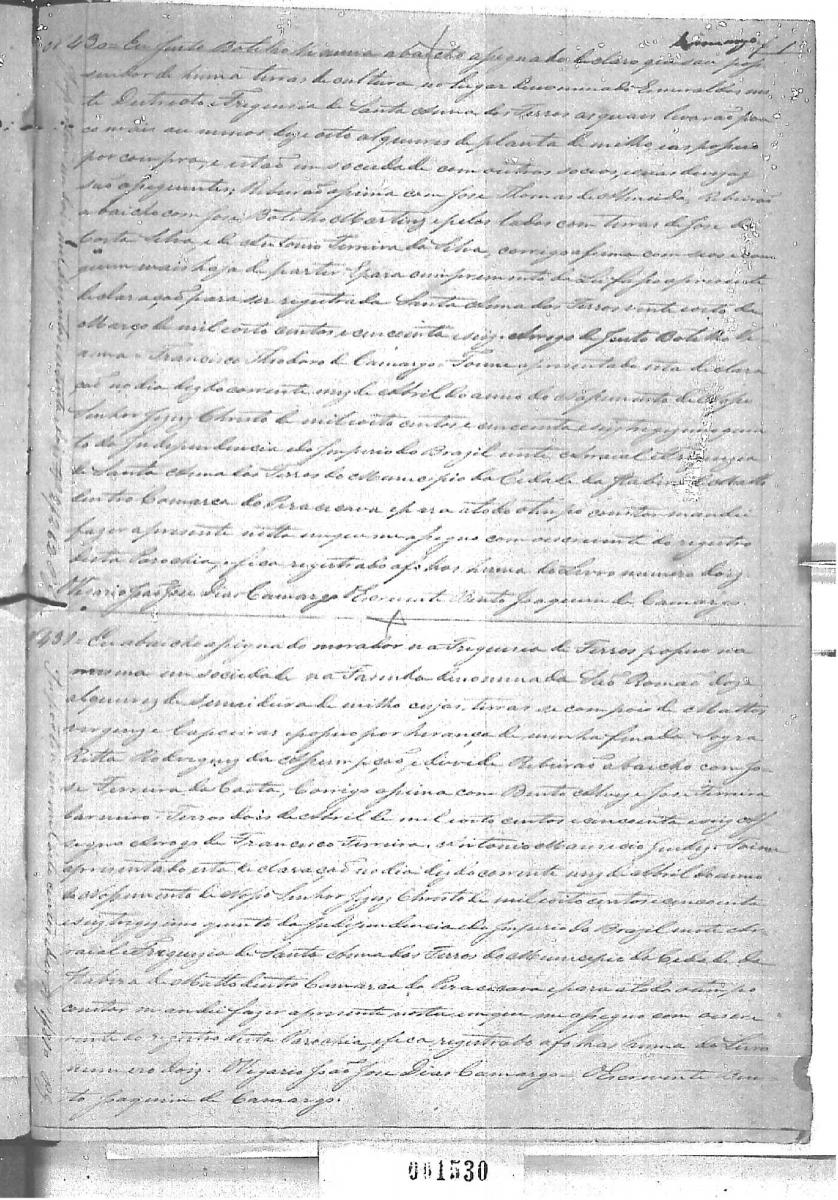 Camargo 1
430= Eu Justo Botelho Vianna abaicho asignado declaro que sou pos
senhor de huma terras de cultura no lugar denominado Esmeraldas nes
te Destrecto e Freguesia de Santa Anna dos Ferros as quaes levarão pou
co mais ou menos dez e oito alqueires de planta de milho e as posseo
por compra, e estão em sociedade com outros socios, e suas devizas
são as seguintes; Ribeirão asima com Jose Thomas de Almeida, Ribeirão
abaicho com Jose Botelho Martins e pelos lados com terras de Jose da
Costa Silva, e de Antonio Ferreira da Silva, corrigo asima com
quem mais haja de partir. E para cumpremento da Lei faço a presente
declaração para ser registrada Santa Anna dos Ferros vinte e oito de
Março de mil e oito centos e cincoenta e seis. Arogo de Justo Botelho Vi
anna = Francisco Theodoro de Camargo. Foi me apresentado esta declara
ção no dia dez do corrente mez de Abril do anno do Nascimento de Nosso
Senhor Jezuz Christo de mil e oito centos e cincoenta e seis trigezimo quin
to da Independencia e do Imperio do Brazil neste Arraial e Freguezia
de Santa Anna dos Ferros do Municipio da Cidade da Itabira de Matto
dentro Comarca do Piracicava e para a todo o tempo constar mandei
fazer a presente notta em que me asigno com o escrevente do registro
desta Parochia, e fica registrado a folhas huma do Livro numero doiz.
O Vigario João Jose Dias Camargo. O Escrevente Bento Joaquim de Camargo.
431= Eu abaicho asignado morador na Freguezia de Ferros posseo na
mesma em sociedade na Fazenda denominada São Romão doze
alqueires de semeadura de milho cujas terras se compoem de Mattos
virgens e Capoeiras e posseo por herança de minha finada Sogra
Ritta Rodrigues da Assumpção, e divide Ribeirão abaicho com Jo
se Ferreira da Costa, Corrigo asima com Bento Alves e Jose Ferreira
Carneiro. Ferros dois de Abril de mil e oito centos e cincoenta e seis. As
signo Arogo de Francisco Ferreira. Antonio Mauricio. Foi me
apresentado esta declaração no dia dez do corrente mez de Abril do anno
do Nascimento de Nosso Senhor Jezuz Christo de mil e oito centos e cincoenta
e seis trigezimo quinto da Independencia e do Imperio do Brazil neste Ar
raial e Freguezia de Santa Anna dos Ferros do Municipio da Cidade da
Itabira de Matto dentro Comarca do Piracicava e para a todo o tempo
constar mandei fazer a presente notta em que me asigno com o escre
vente do registro desta Parochia, e fica registrado a folhas huma do Livro
numero doiz. O Vigario João Jose Dias Camargo. O Escrevente Ben
to Joaquim de Camargo.
001530